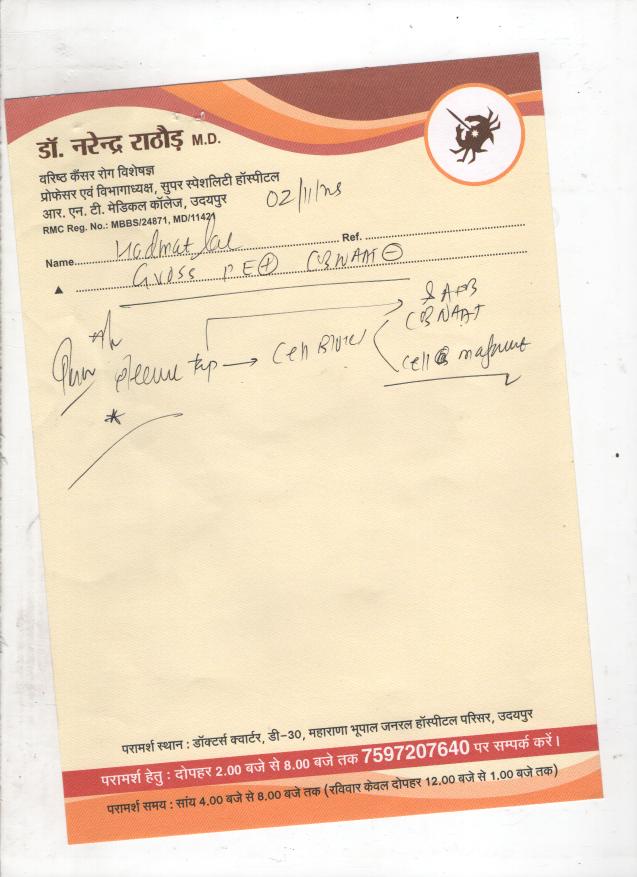 डॉ. नरेन्द्र राठौड़ M.D.
वरिष्ठ कैंसर रोग विशेषज्ञ
प्रोफेसर एवं विभागाध्यक्ष, सुपर स्पेशलिटी हॉस्पीटल
आर. एन. टी. मेडिकल कॉलेज, उदयपुर
RMC Reg. No.: MBBS/24871, MD/11421
02/11/
Name Ref.
Gross PE + CBNAAT -
AFB
CBNAAT
tap → Cell Block
cell
परामर्श स्थान : डॉक्टर्स क्वार्टर, डी-30, महाराणा भूपाल जनरल हॉस्पीटल परिसर, उदयपुर
परामर्श हेतु : दोपहर 2.00 बजे से 8.00 बजे तक 7597207640 पर सम्पर्क करें।
परामर्श समय : सांय 4.00 बजे से 8.00 बजे तक (रविवार केवल दोपहर 12.00 बजे से 1.00 बजे तक)